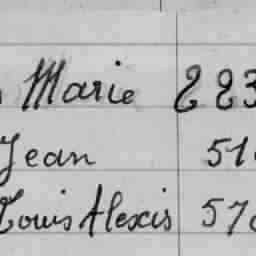 Marie 223
Jean 51
Louis Alexis 57